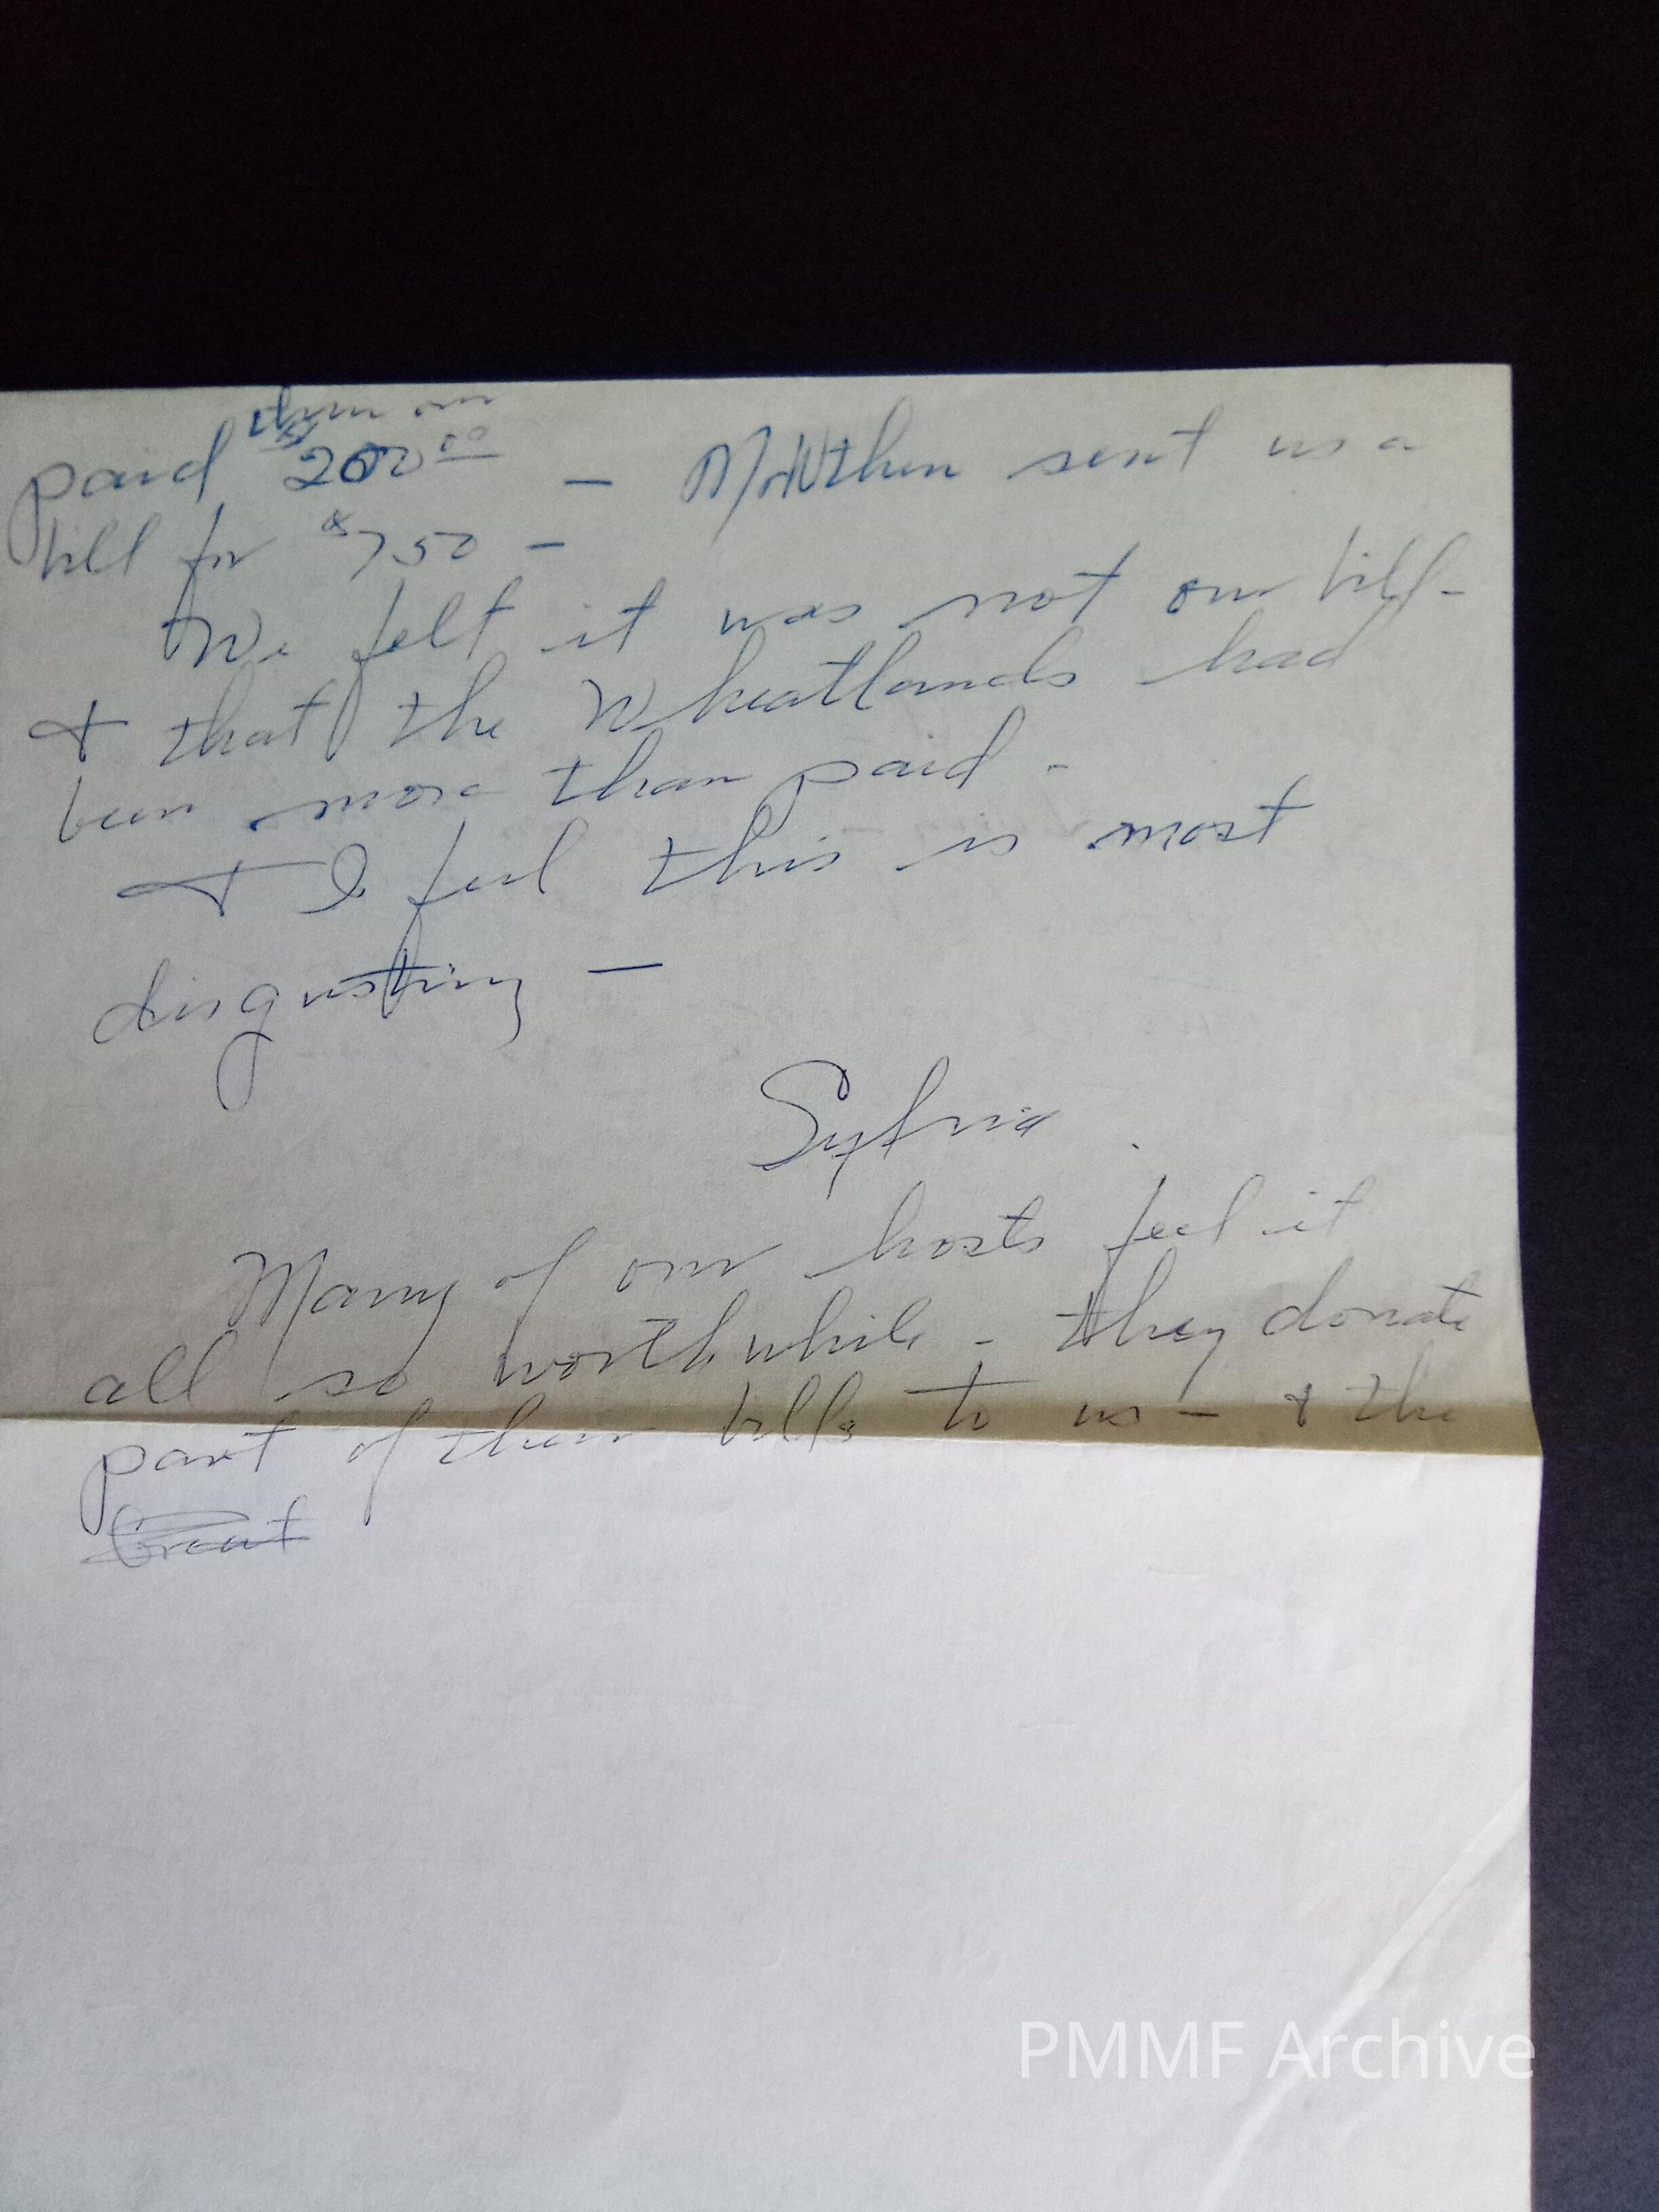 them our
paid $200.00 — then sent us a
bill for $750 —
We felt it was not our bill-
+ that the Wheatlands had
been more than paid -
+ I feel this is most
disgusting —
Sylvia
Many of our hosts feel it
all so worthwhile - they donate
part of their bills to us - & the
PMMF Archive